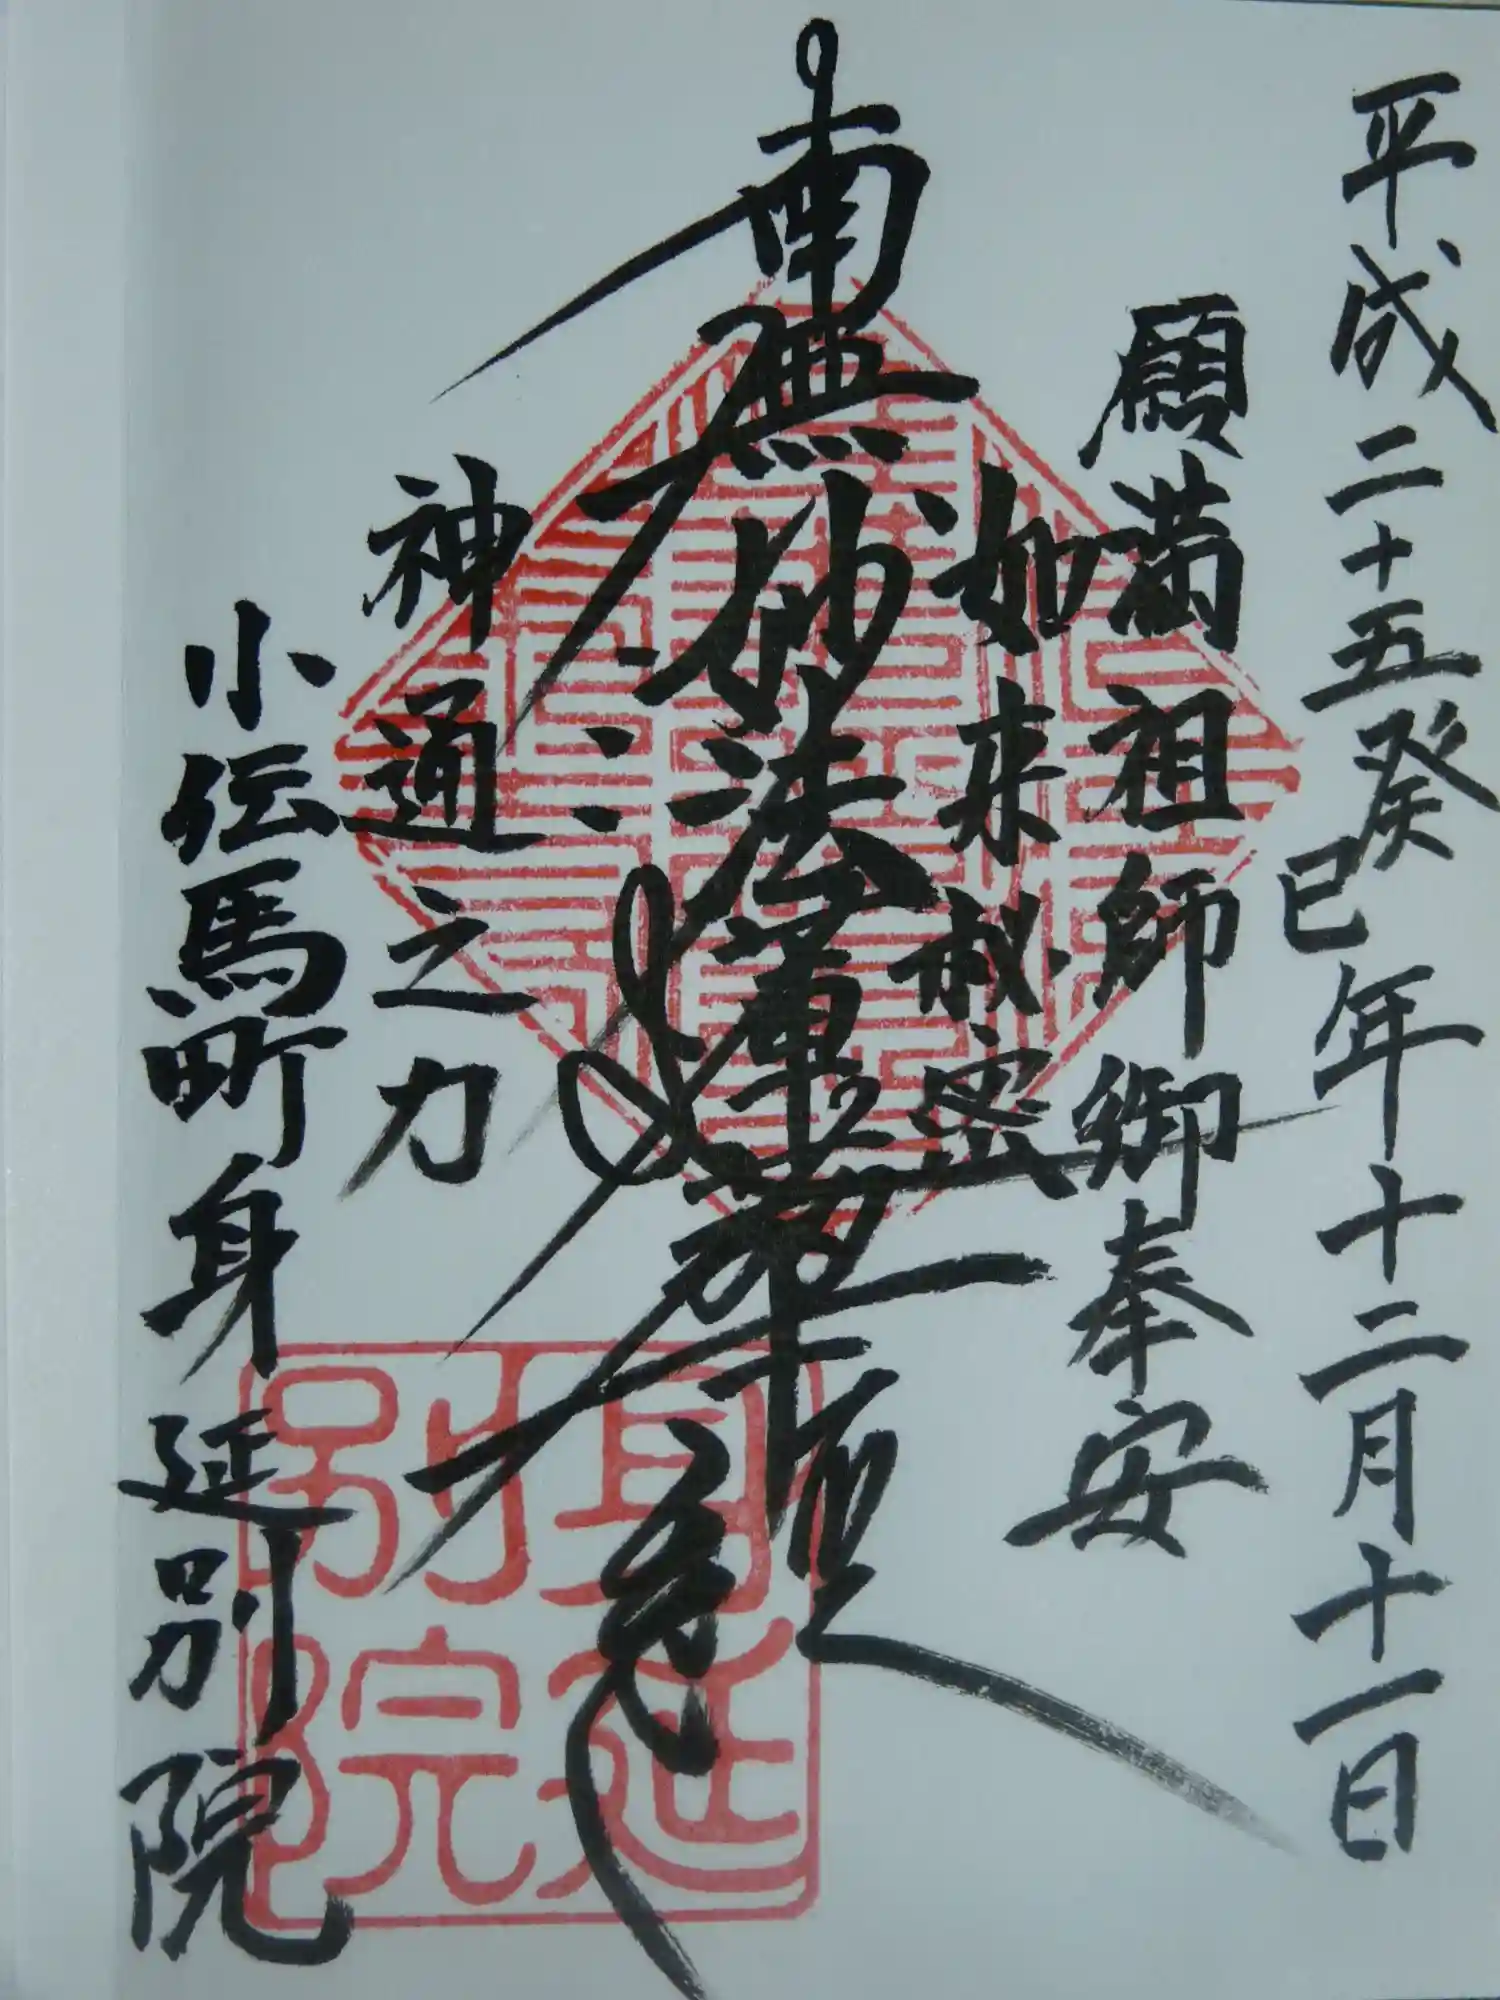 平成二十五癸巳年十二月十一日
願満祖師御奉安
如来秘密
南無妙法蓮華経
神通之力
小伝馬町身延別院
身延別院